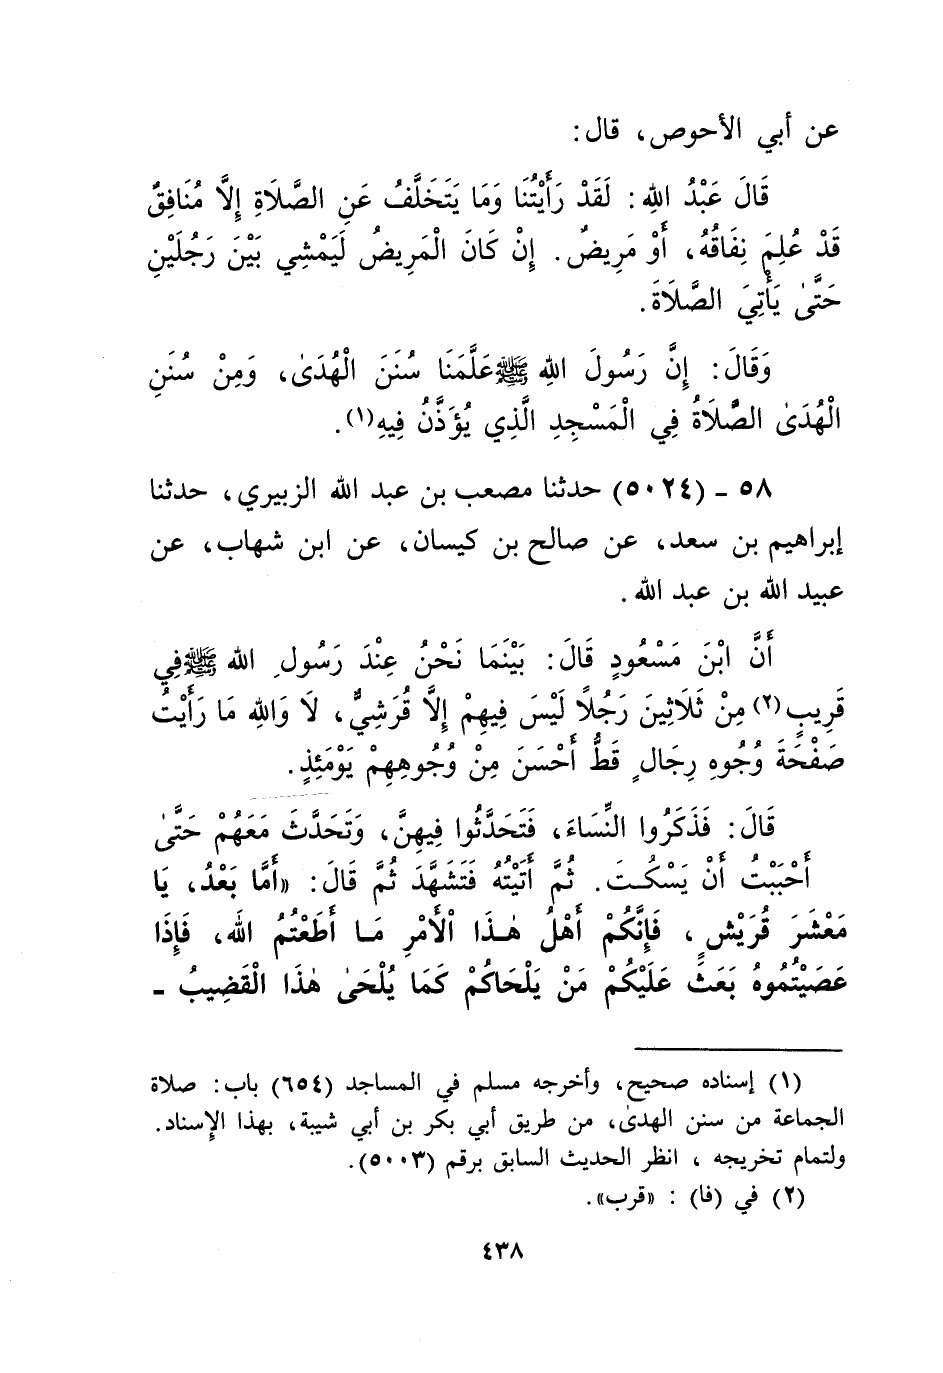 عن أبي الأحوص، قال:
قَالَ عَبْدُ اللهِ: لَقَدْ رَأَيْتُنَا وَمَا يَتَخَلَّفُ عَنِ الصَّلَاةِ إِلَّا مُنَافِقٌ
قَدْ عُلِمَ نِفَاقُهُ، أَوْ مَرِيضٌ. إِنْ كَانَ الْمَرِيضُ لَيَمْشِي بَيْنَ رَجُلَيْنِ
حَتَّىٰ يَأْتِيَ الصَّلَاةَ.
وَقَالَ: إِنَّ رَسُولَ اللهِ ﷺ عَلَّمَنَا سُنَنَ الْهُدَىٰ، وَمِنْ سُنَنِ
الْهُدَىٰ الصَّلَاةُ فِي الْمَسْجِدِ الَّذِي يُؤَذَّنُ فِيهِ(١).
٥٨ - (٥٠٢٤) حدثنا مصعب بن عبد الله الزبيري، حدثنا
إبراهيم بن سعد، عن صالح بن كيسان، عن ابن شهاب، عن
عبيد الله بن عبد الله.
أَنَّ ابْنَ مَسْعُودٍ قَالَ: بَيْنَمَا نَحْنُ عِنْدَ رَسُولِ الله ﷺ فِي
قَرِيبٍ(٢) مِنْ ثَلَاثِينَ رَجُلًا لَيْسَ فِيهِمْ إِلَّا قُرَشِيٌّ، لَا وَاللهِ مَا رَأَيْتُ
صَفْحَةَ وُجُوهِ رِجَالٍ قَطُّ أَحْسَنَ مِنْ وُجُوهِهِمْ يَوْمَئِذٍ.
قَالَ: فَذَكَرُوا النِّسَاءَ، فَتَحَدَّثُوا فِيهِنَّ، وَتَحَدَّثَ مَعَهُمْ حَتَّىٰ
أَحْبَبْتُ أَنْ يَسْكُتَ. ثُمَّ أَتَيْتُهُ فَتَشَهَّدَ ثُمَّ قَالَ: «أَمَّا بَعْدُ، يَا
مَعْشَرَ قُرَيْشٍ، فَإِنَّكُمْ أَهْلُ هٰذَا الْأَمْرِ مَا أَطَعْتُمُ اللهَ، فَإِذَا
عَصَيْتُمُوهُ بَعَثَ عَلَيْكُمْ مَنْ يَلْحَاكُمْ كَمَا يُلْحَىٰ هٰذَا الْقَضِيبُ -
(١) إسناده صحيح، وأخرجه مسلم في المساجد (٦٥٤) باب: صلاة
الجماعة من سنن الهدىٰ، من طريق أبي بكر بن أبي شيبة، بهذا الإسناد.
ولتمام تخريجه، انظر الحديث السابق برقم (٥٠٠٣).
(٢) في (فا): «قرب».
٤٣٨